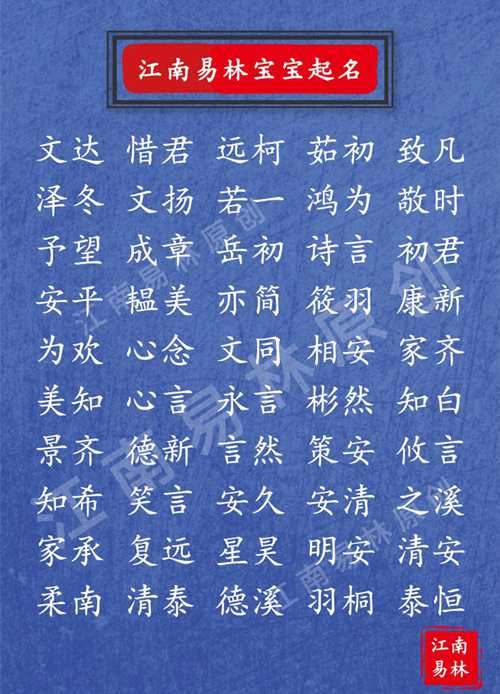 江南易林宝宝起名
文达 惜君 远柯 茹初 致凡
泽冬 文扬 若一 鸿为 敬时
予望 成章 岳初 诗言 初君
安平 韫美 亦简 筱羽 康新
为欢 心念 文同 相安 家齐
美知 心言 永言 彬然 知白
景齐 德新 言然 策安 攸言
知希 笑言 安久 安清 之溪
家承 复远 星昊 明安 清安
柔南 清泰 德溪 羽桐 泰恒
江南易林原创
江南易林原创
江南易林原创
江南
易林